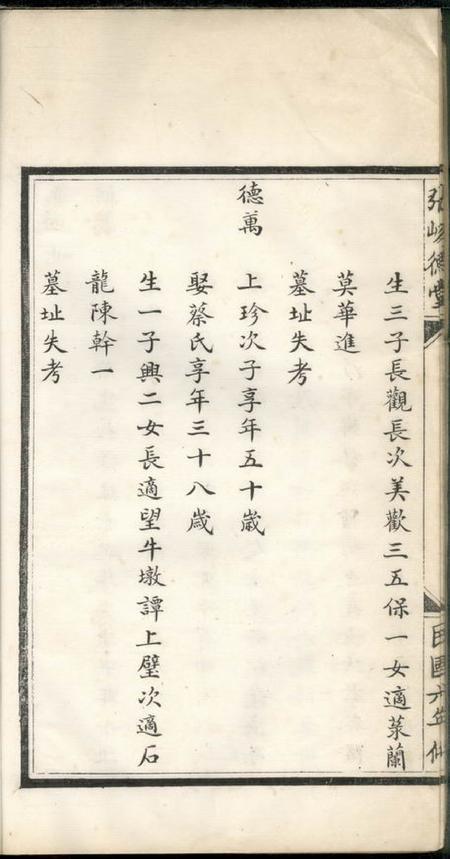 生三子長觀長次美歡三五保一女適菜蘭
莫華進
墓址失考
德萬
上珍次子享年五十歲
娶蔡氏享年三十八歲
生一子興二女長適望牛墩譚上璧次適石
龍陳幹一
墓址失考
張 德堂
民國六年